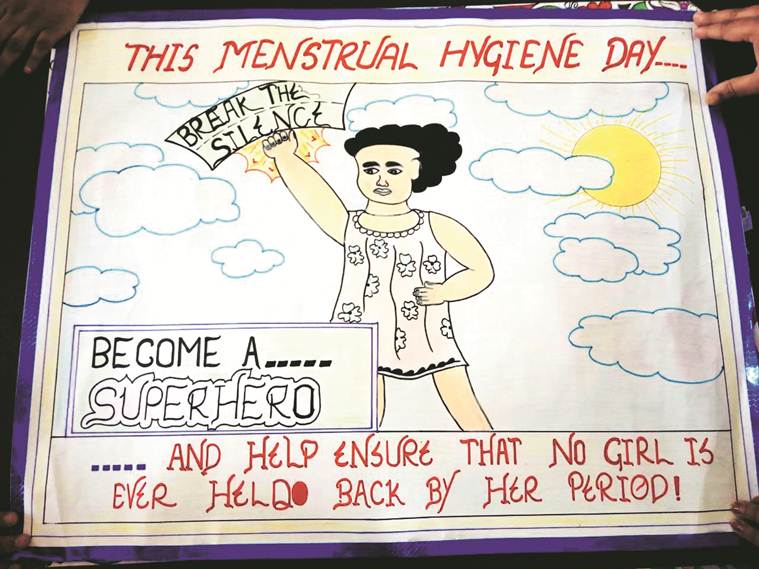 THIS MENSTRUAL HYGIENE DAY....
BREAK THE
SILENCE
BECOME A.....
SUPERHERO
..... AND HELP ENSURE THAT NO GIRL IS
EVER HELD BACK BY HER PERIOD!